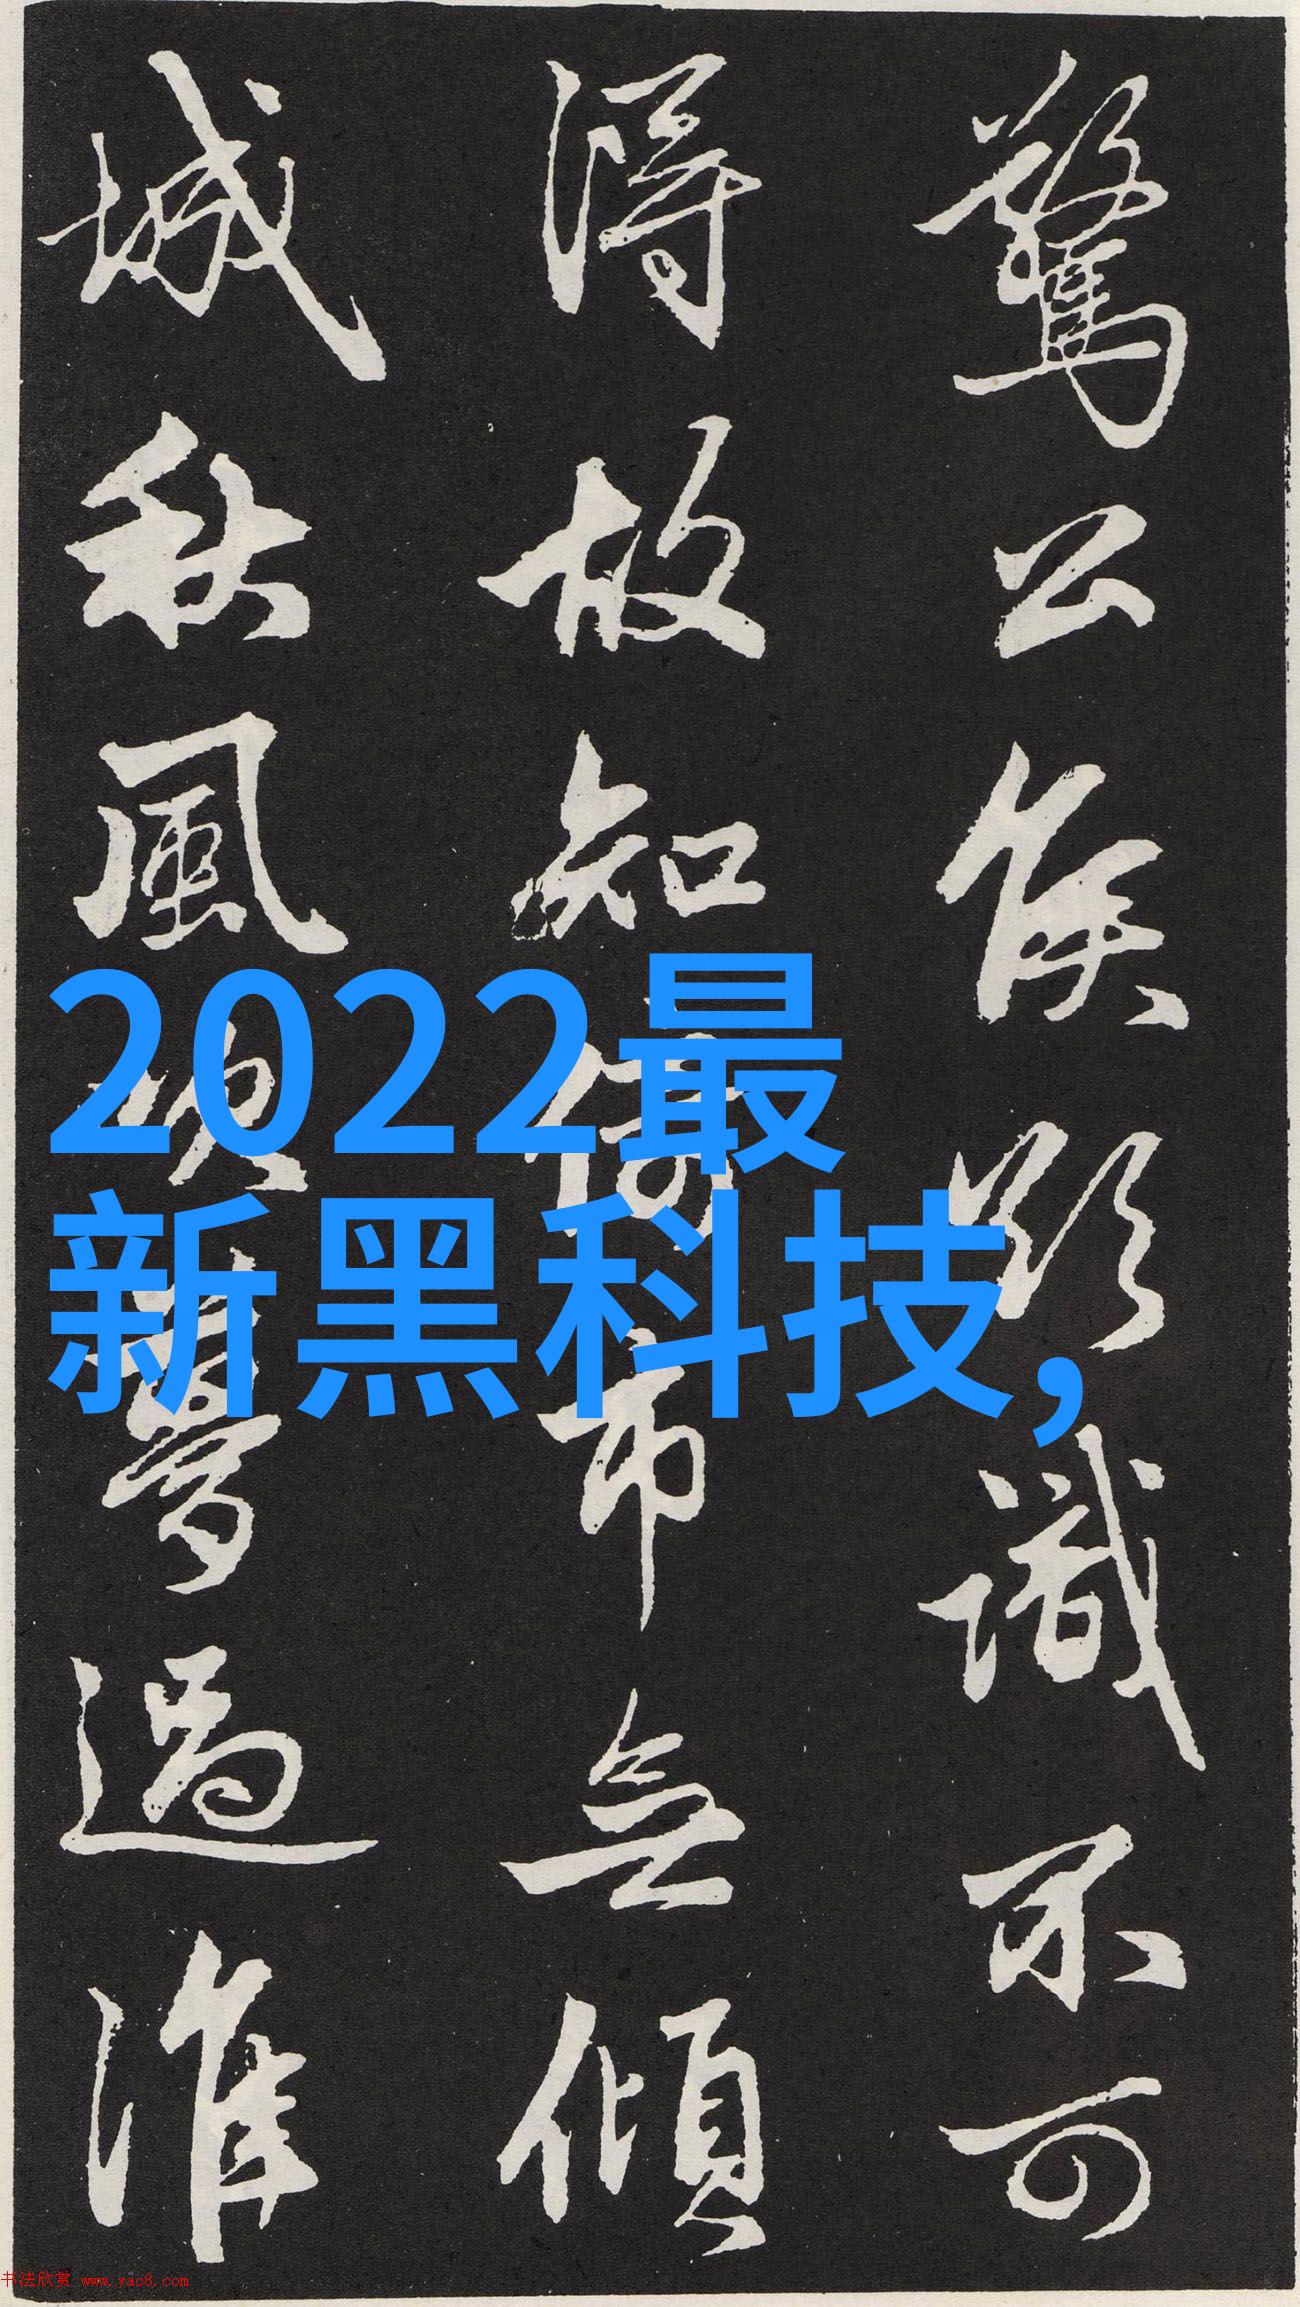 驚公侯欲識不可
得故知市無傾
城秋風吹夢過淮
2022最
新黑科技,
书法欣赏 www.yac8.com